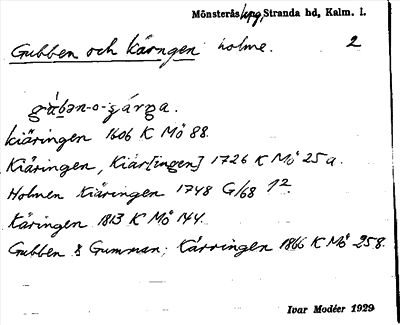 Mönsterås kpg, Stranda hd, Kalm. l.
Gubben och Kärngen holme. 2
kiäringen 1606 K Mö 88.
Kiäringen, Kiär[ingen] 1726 K Mö 25a.
Holmen Kiäringen 1748 G/68 1²
Käringen 1813 K Mö 144.
Gubben & Gumman; Kärringen 1866 K Mö 258.
Ivar Modéer 1929